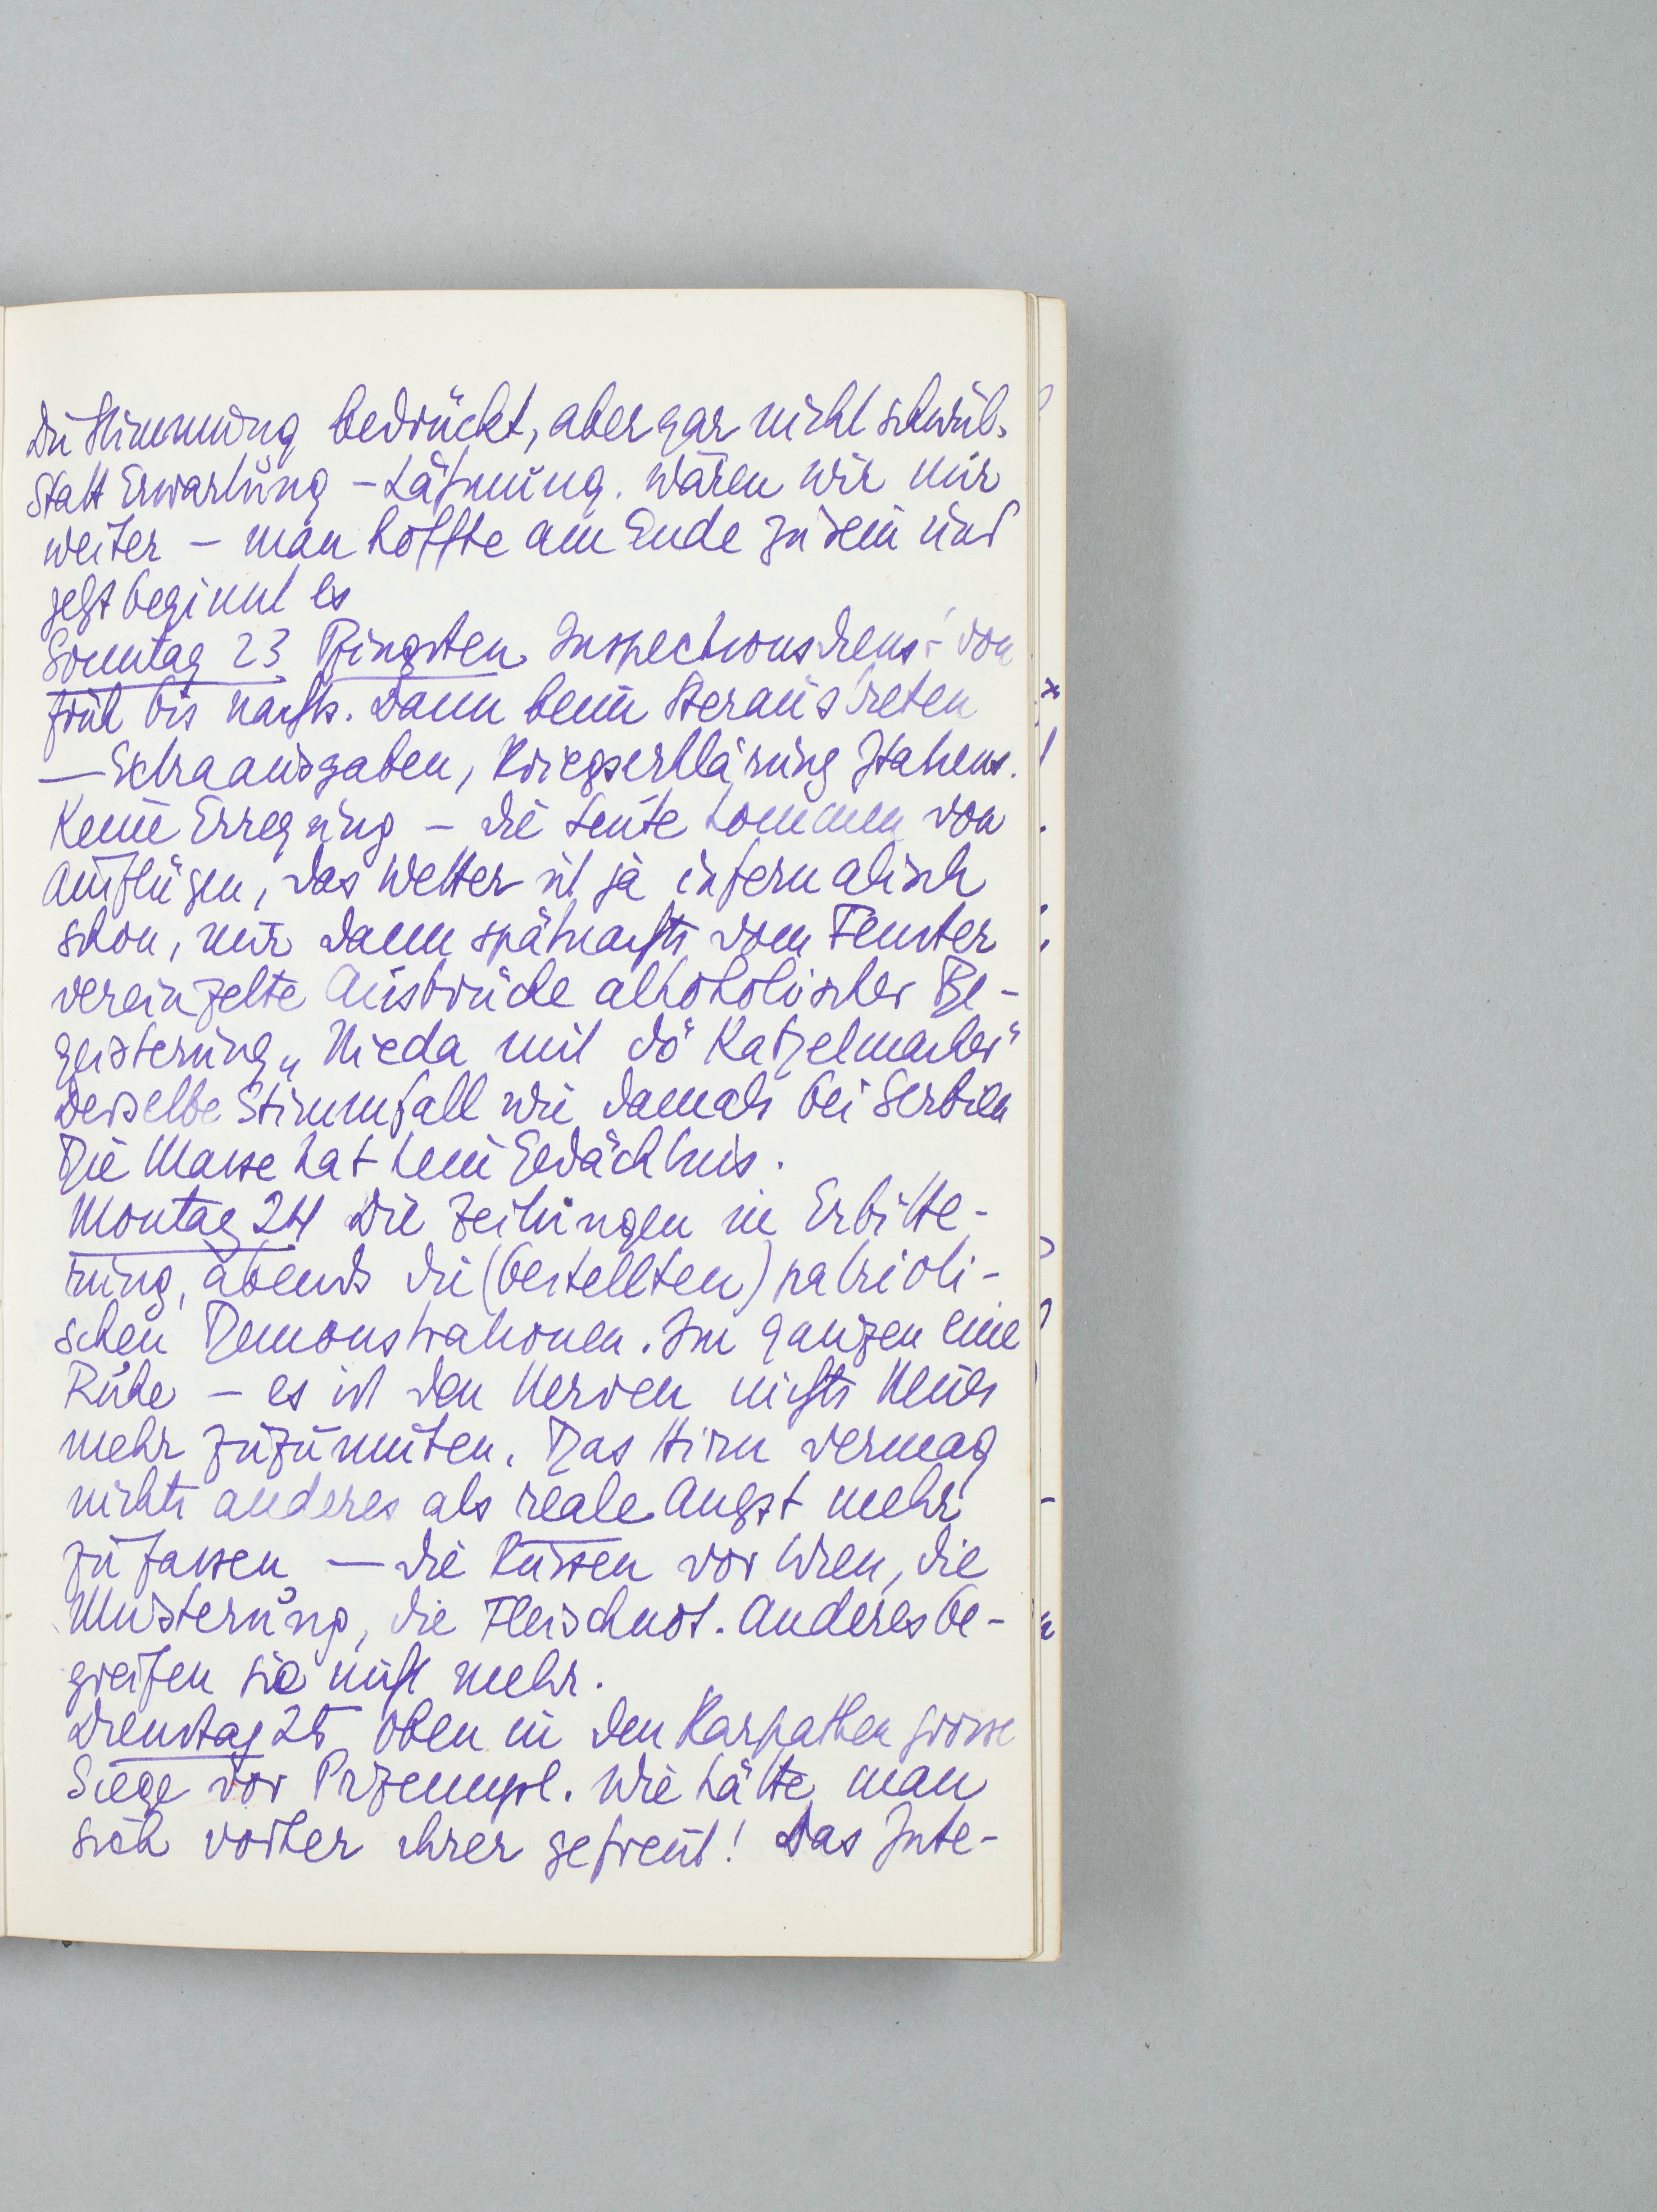 Die Stimmung bedrückt, aber gar nicht schwül.
Statt Erwartung – Lähmung. Wären wir nur
weiter – man hoffte am Ende zu sein und
jetzt beginnt es
Sonntag 23 Pfingsten Inspectionsdienst von
früh bis nachts. Dann beim Heraustreten
— Extraausgaben, Kriegserklärung Italiens.
Keine Erregung – die Leute kommen von
Ausflügen, das Wetter ist ja infernalisch
schön, nur dann spätnachts vom Fenster
vereinzelte Ausbrüche alkoholischer Be-
geisterung „Nieda mit dö Katzelmacher“
Derselbe Stimmfall wie damals bei Serbien
Die Masse hat kein Gedächtnis.
Montag 24 Die Zeitungen in Erbitte-
rung, abends die (bestellten) patrioti-
schen Demonstrationen. Im ganzen eine
Ruhe – es ist den Nerven nichts Neues
mehr zuzumuten. Das Hirn vermag
nichts anderes als reale Angst mehr
zu fassen — die Russen vor Wien, die
Musterung, die Fleischnot. Anderes be-
greifen sie nicht mehr.
Dienstag 25 Oben in den Karpathen grosse
Siege vor Przemysl. Wie hätte man
sich vorher ihrer gefreut! Das Inte-